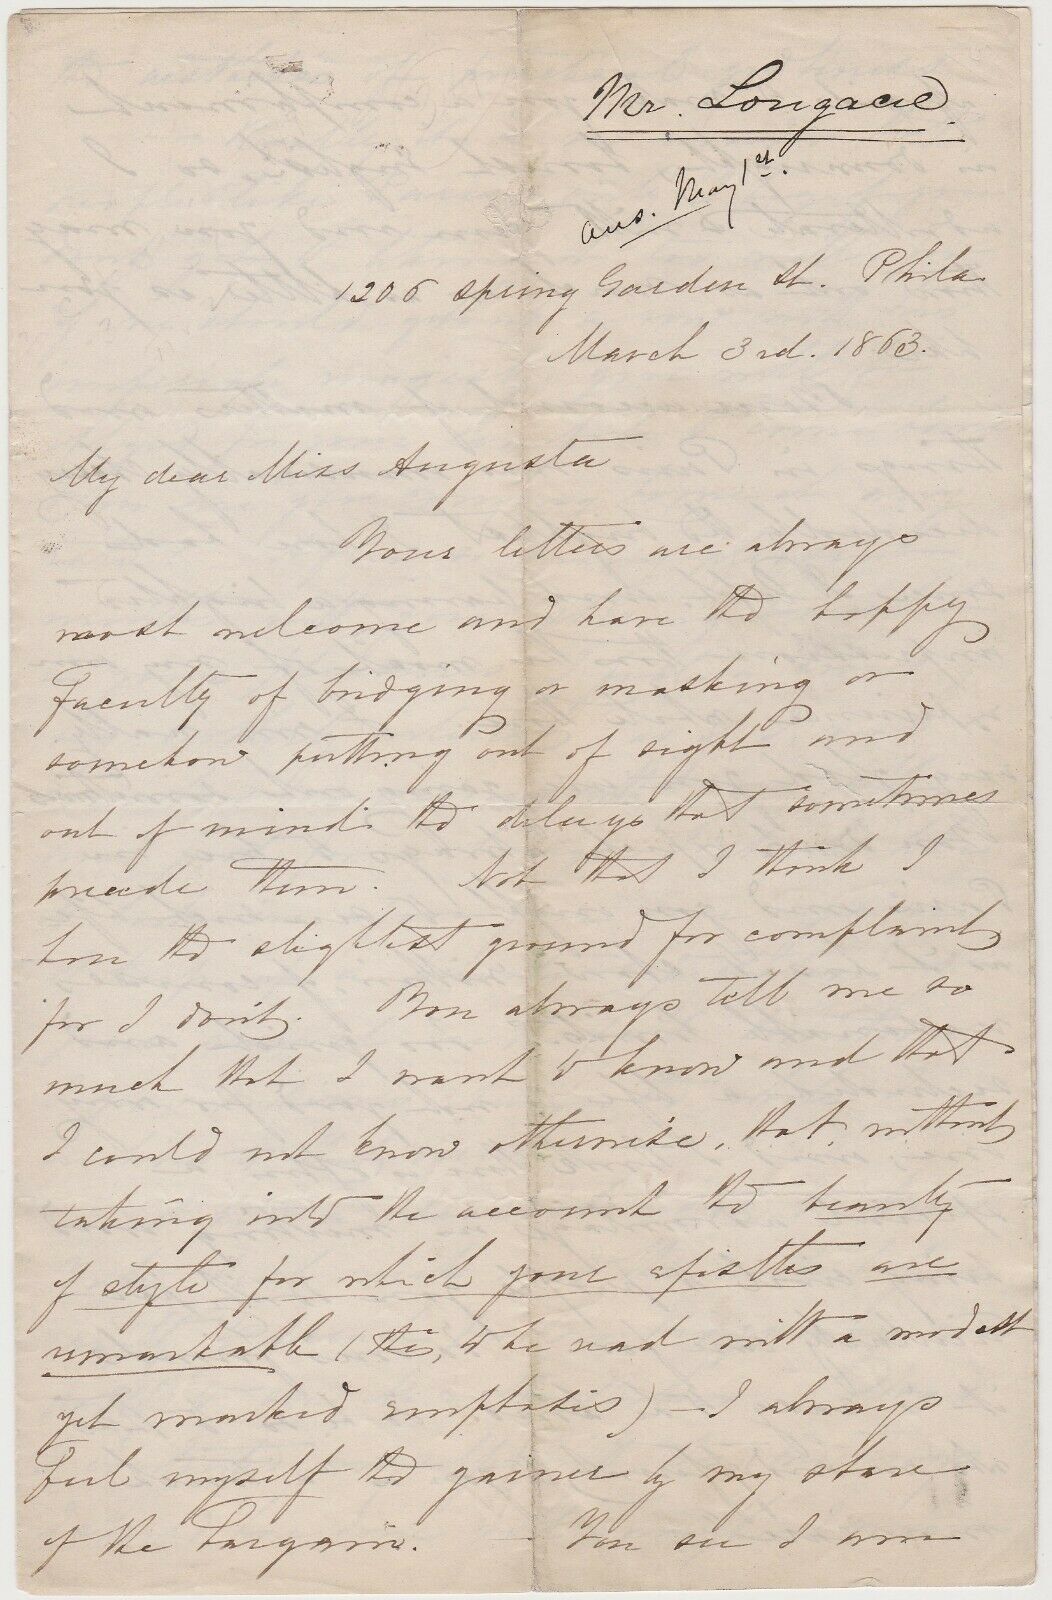 Mr. Longacre.
ans. May 1st.
1206 Spring Garden St. Phila
March 3rd. 1863.
My dear Miss Augusta
Your letters are always
most welcome and have the happy
Faculty of bridging or masking or
somehow putting out of sight and
out of mind the delays that sometimes
precede them. Not that I think I
have the slightest ground for complaint,
for I don't. You always tell me so
much that I want to know and that
I could not know otherwise, that, without
taking into the account the beauty
of style for which your epistles are
remarkable (this, to be read with a modest
yet marked emphasis) — I always
Feel myself the gainer by my share
of the bargain. You see I am